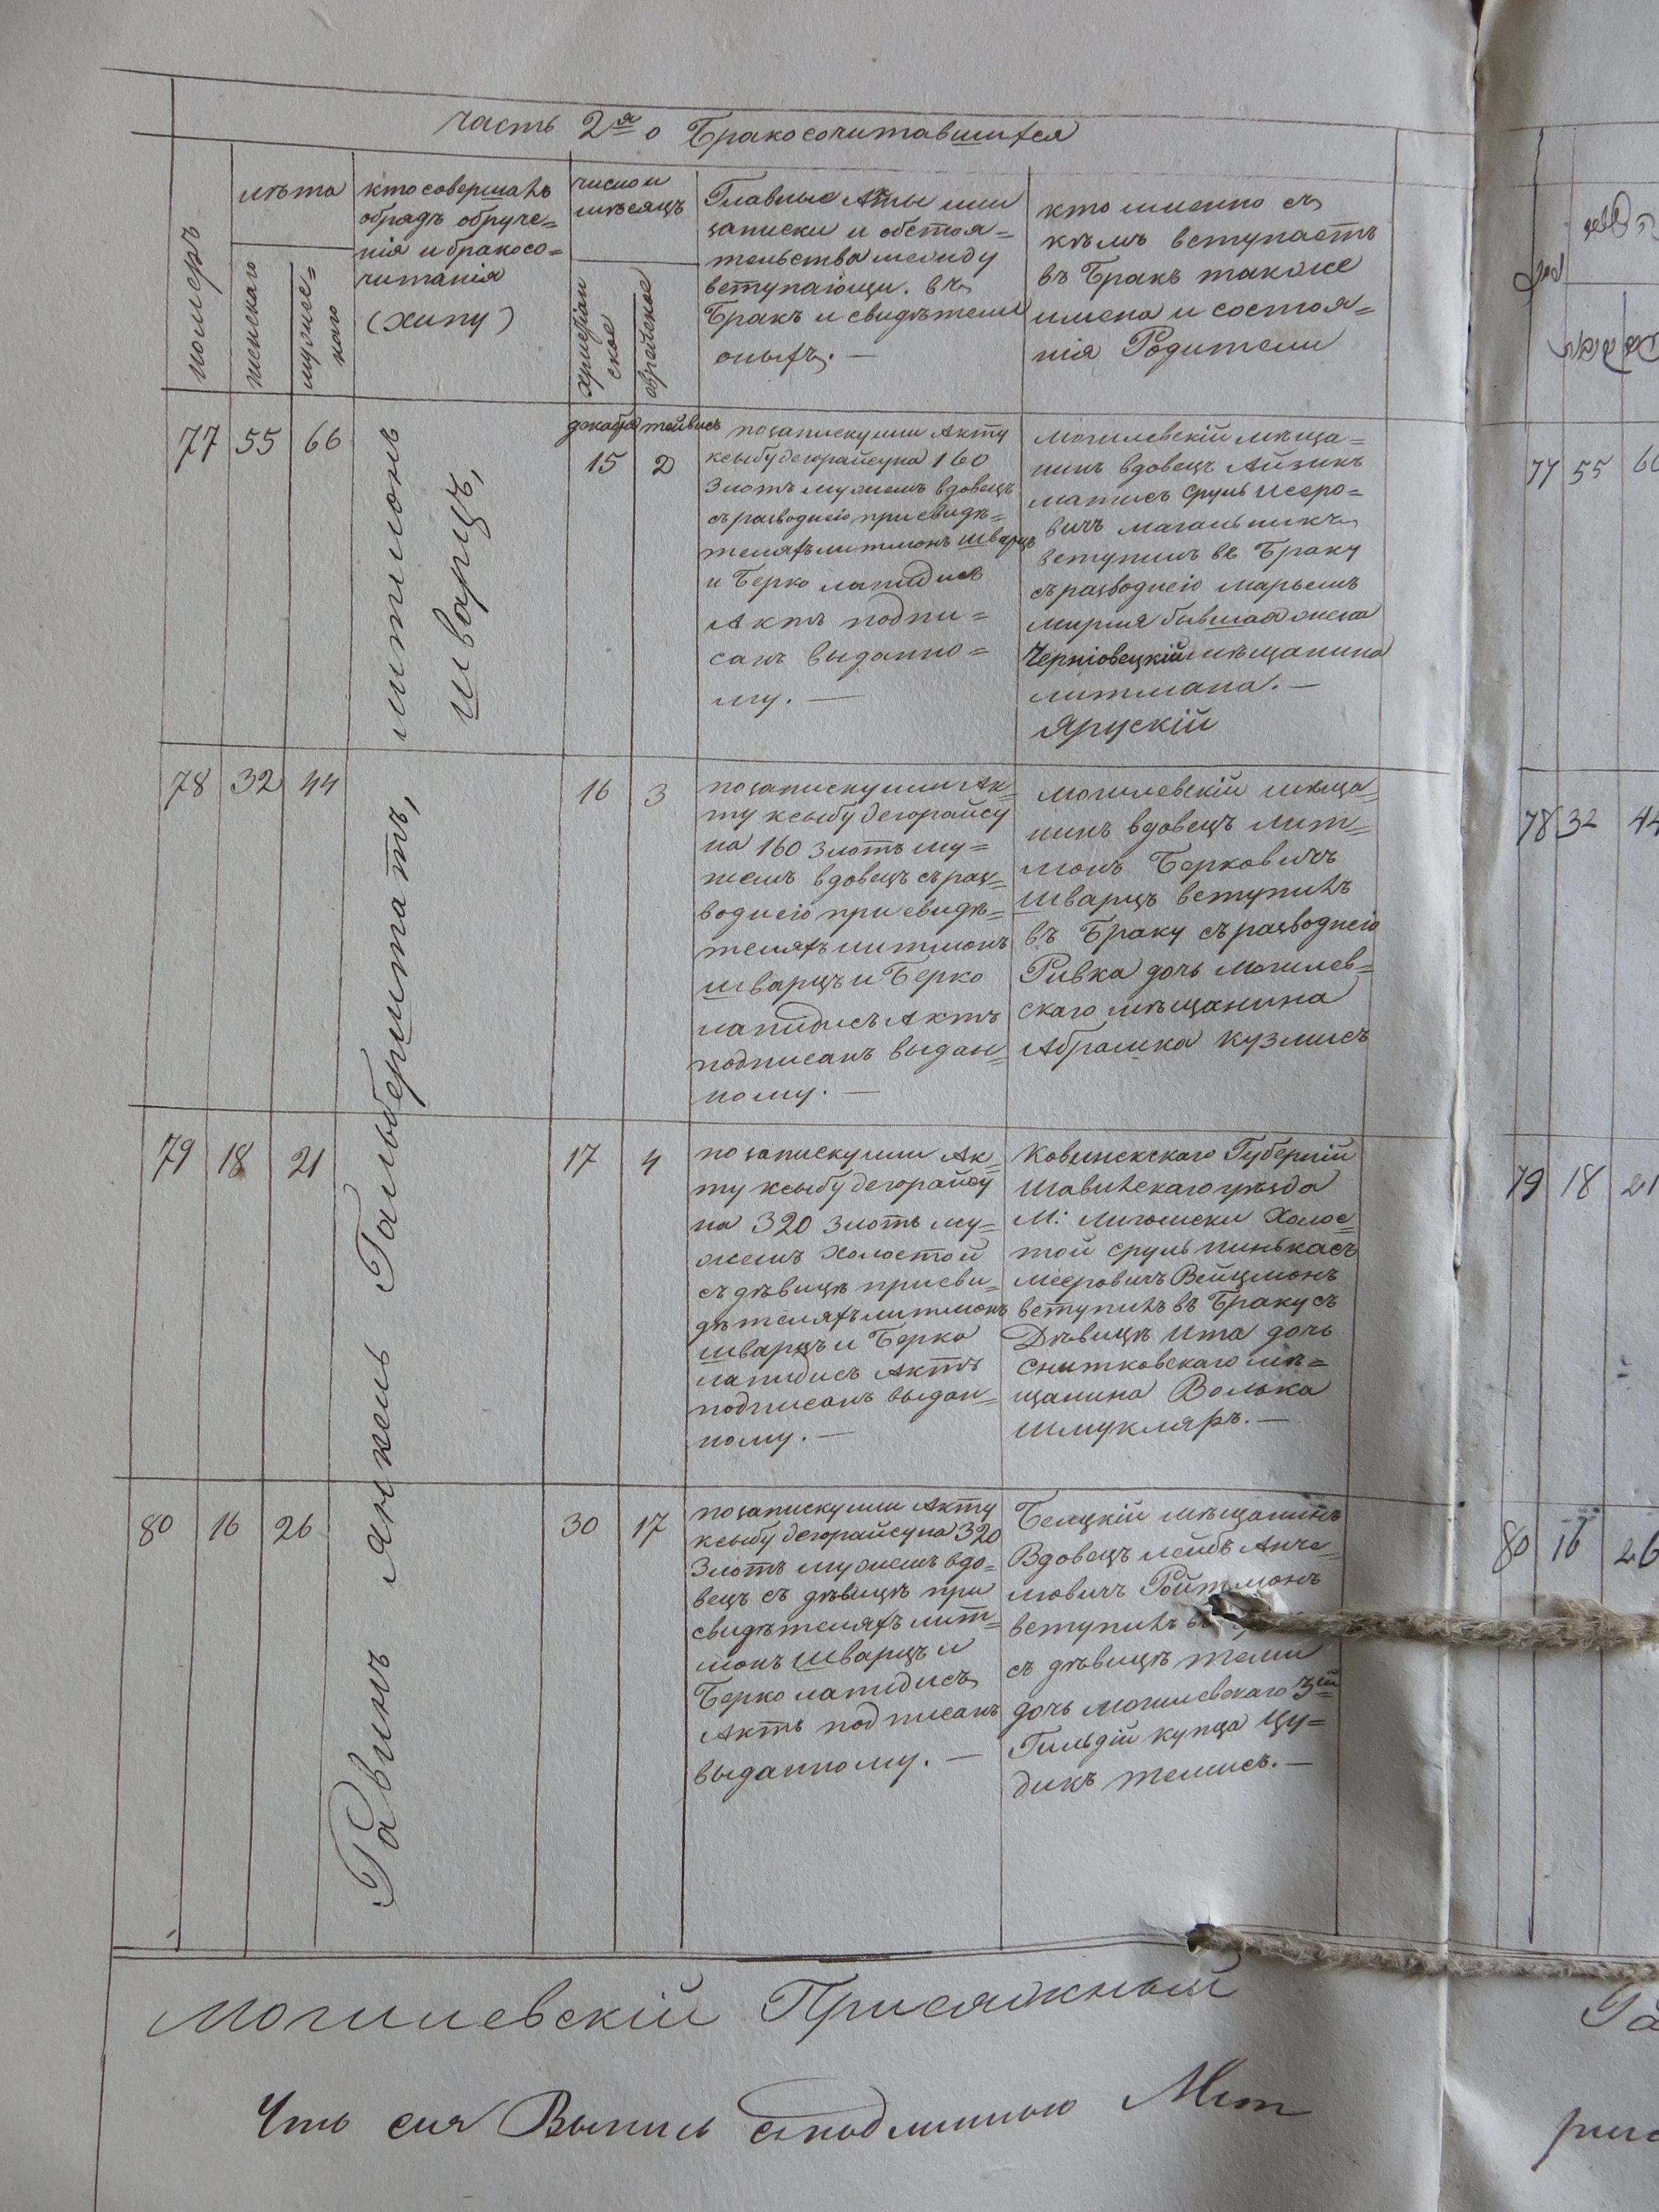 часть 2я о Бракосочитавшихся
номеръ
лѣта
женскаго
мужес=
каго
кто совершалъ
обрядъ обруче=
нія и бракосо=
читанія
(хупу)
число и
мѣсяцъ
христіан
ское
еврейское
Главные Акты или
записки и обстоя=
тельства между
вступающи. въ
Бракъ и свидѣтели
оныхъ. —
кто именно съ
кѣмъ вступаетъ
въ Бракъ также
имена и состоя=
нія Родители
77 55 66
декабря
15
тейвесъ
2
по запискуили Акту
ксыбу деюрайсуна 160
Злотъ мужемъ вдовецъ
съ разводнею при свидѣ=
теляхъ литмонъ шварцъ
и Берко лапидисъ
Актъ подпи=
санъ выданно=
му. —
могилевскій мѣща=
нинъ вдовецъ Айзикъ
матисъ сруль исеро=
вичъ магальникъ
вступилъ въ Браку
съ разводнею марьемъ
мирля бывшая жена
Черніовецкій мѣщанина
литмана. —
Ярускій
78 32 44
16 3
по запискуили Ак=
ту ксыбу деюрайсу
на 160 злотъ му=
жемъ вдовецъ съ раз=
воднею при свидѣ=
теляхъ литмонъ
шварцъ и Берко
лапидисъ Актъ
подписанъ выдан=
ному. —
могилевскій мѣща=
нинъ вдовецъ лит=
монъ Берковичъ
шварцъ вступилъ
въ Браку съ разводнею
Ривка дочь могилев=
скаго мѣщанина
Абрамка кузмисъ
79 18 21
17 4
по запискуили Ак=
ту ксыбу деюрайсу
на 320 злотъ му=
жемъ холостой
съ дѣвицѣ при сви=
дѣтеляхъ литмонъ
шварцъ и Берко
лапидисъ Актъ
подписанъ выдан=
ному. —
Ковинскскаго Губерній
шавильскаго уѣзда
М: лигомски холос=
той сруль пинькасъ
мееровичъ Вейцмонъ
вступилъ въ Браку съ
Дѣвицѣ ита дочь
снитковскаго мѣ=
щанина Волька
шмукляръ. —
80 16 26
30 17
по запискуили Акту
ксыбу деюрайсуна 320
Злотъ мужемъ вдо=
вецъ съ дѣвицѣ при
свидѣтеляхъ лит=
монъ шварцъ и
Берко лапидисъ
Актъ подписанъ
выданному. —
Белцкій мѣщанинъ
Вдовецъ лейбъ Анче=
лювичъ Ройтмонъ
вступилъ въ
съ дѣвицѣ теми
дочь могилевскаго 3ей
Гильдій купца Цу=
дикъ темисъ. —
Равинъ янкель Гальберштатъ, литмонъ
шварцъ,
могилевскій Присяжный
Что сия Выпись сподлинною Мет
77 55 66
78 32 44
79 18 21
80 16 26